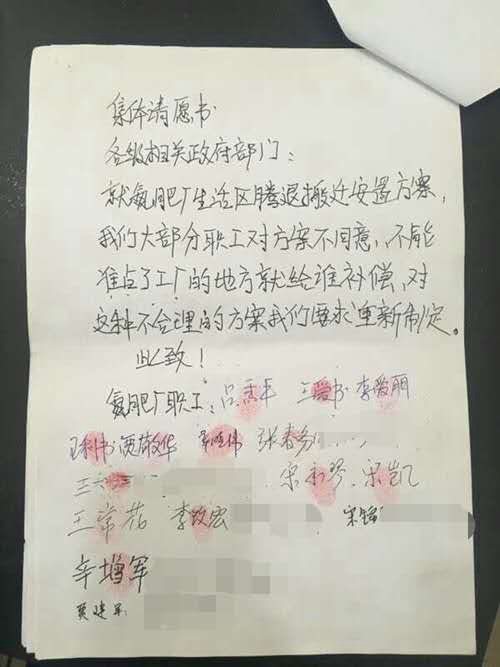 集体请愿书
各级相关政府部门：
就氨肥厂生活区腾退搬迁安置方案，
我们大部分职工对方案不同意，不能
谁占了工厂的地方就给谁补偿、对
这种不合理的方案我们要求重新制定。
此致！
氨肥厂职工：吕 王爱书 李爱丽
王利书 贾敬华 伟 张春
王 宋利琴、宋凯
王常花 李改宏 宋铭
辛增军
贾建军